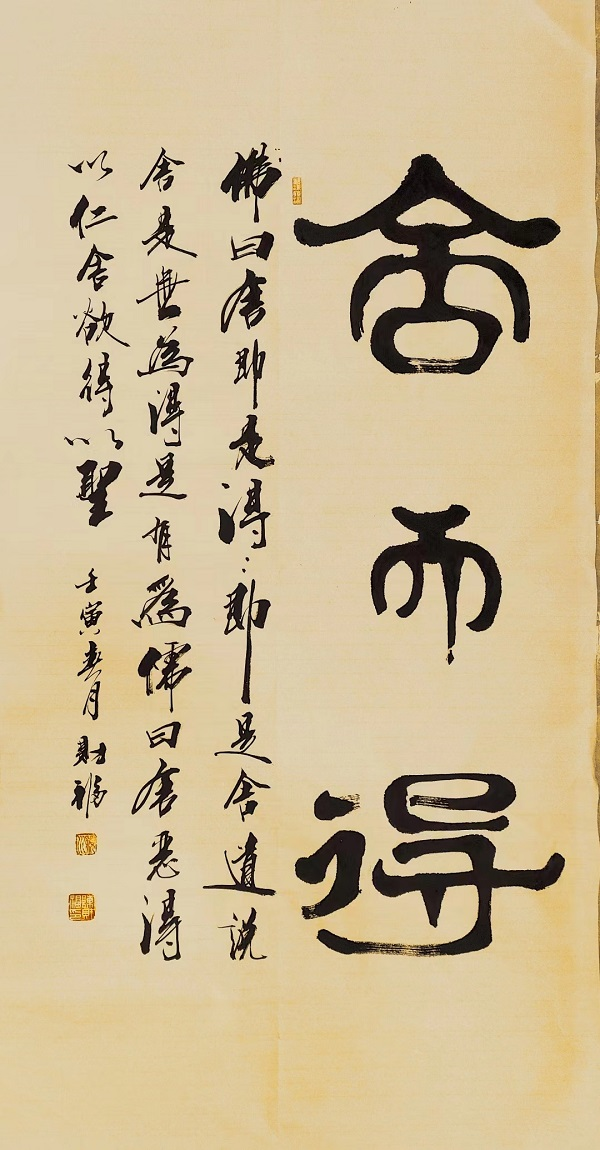 舍而得
佛曰舍即是得:即是舍遺说
舍是無為得是有為儒曰舍惡得
以仁舍欲得以聖
壬寅春月財福